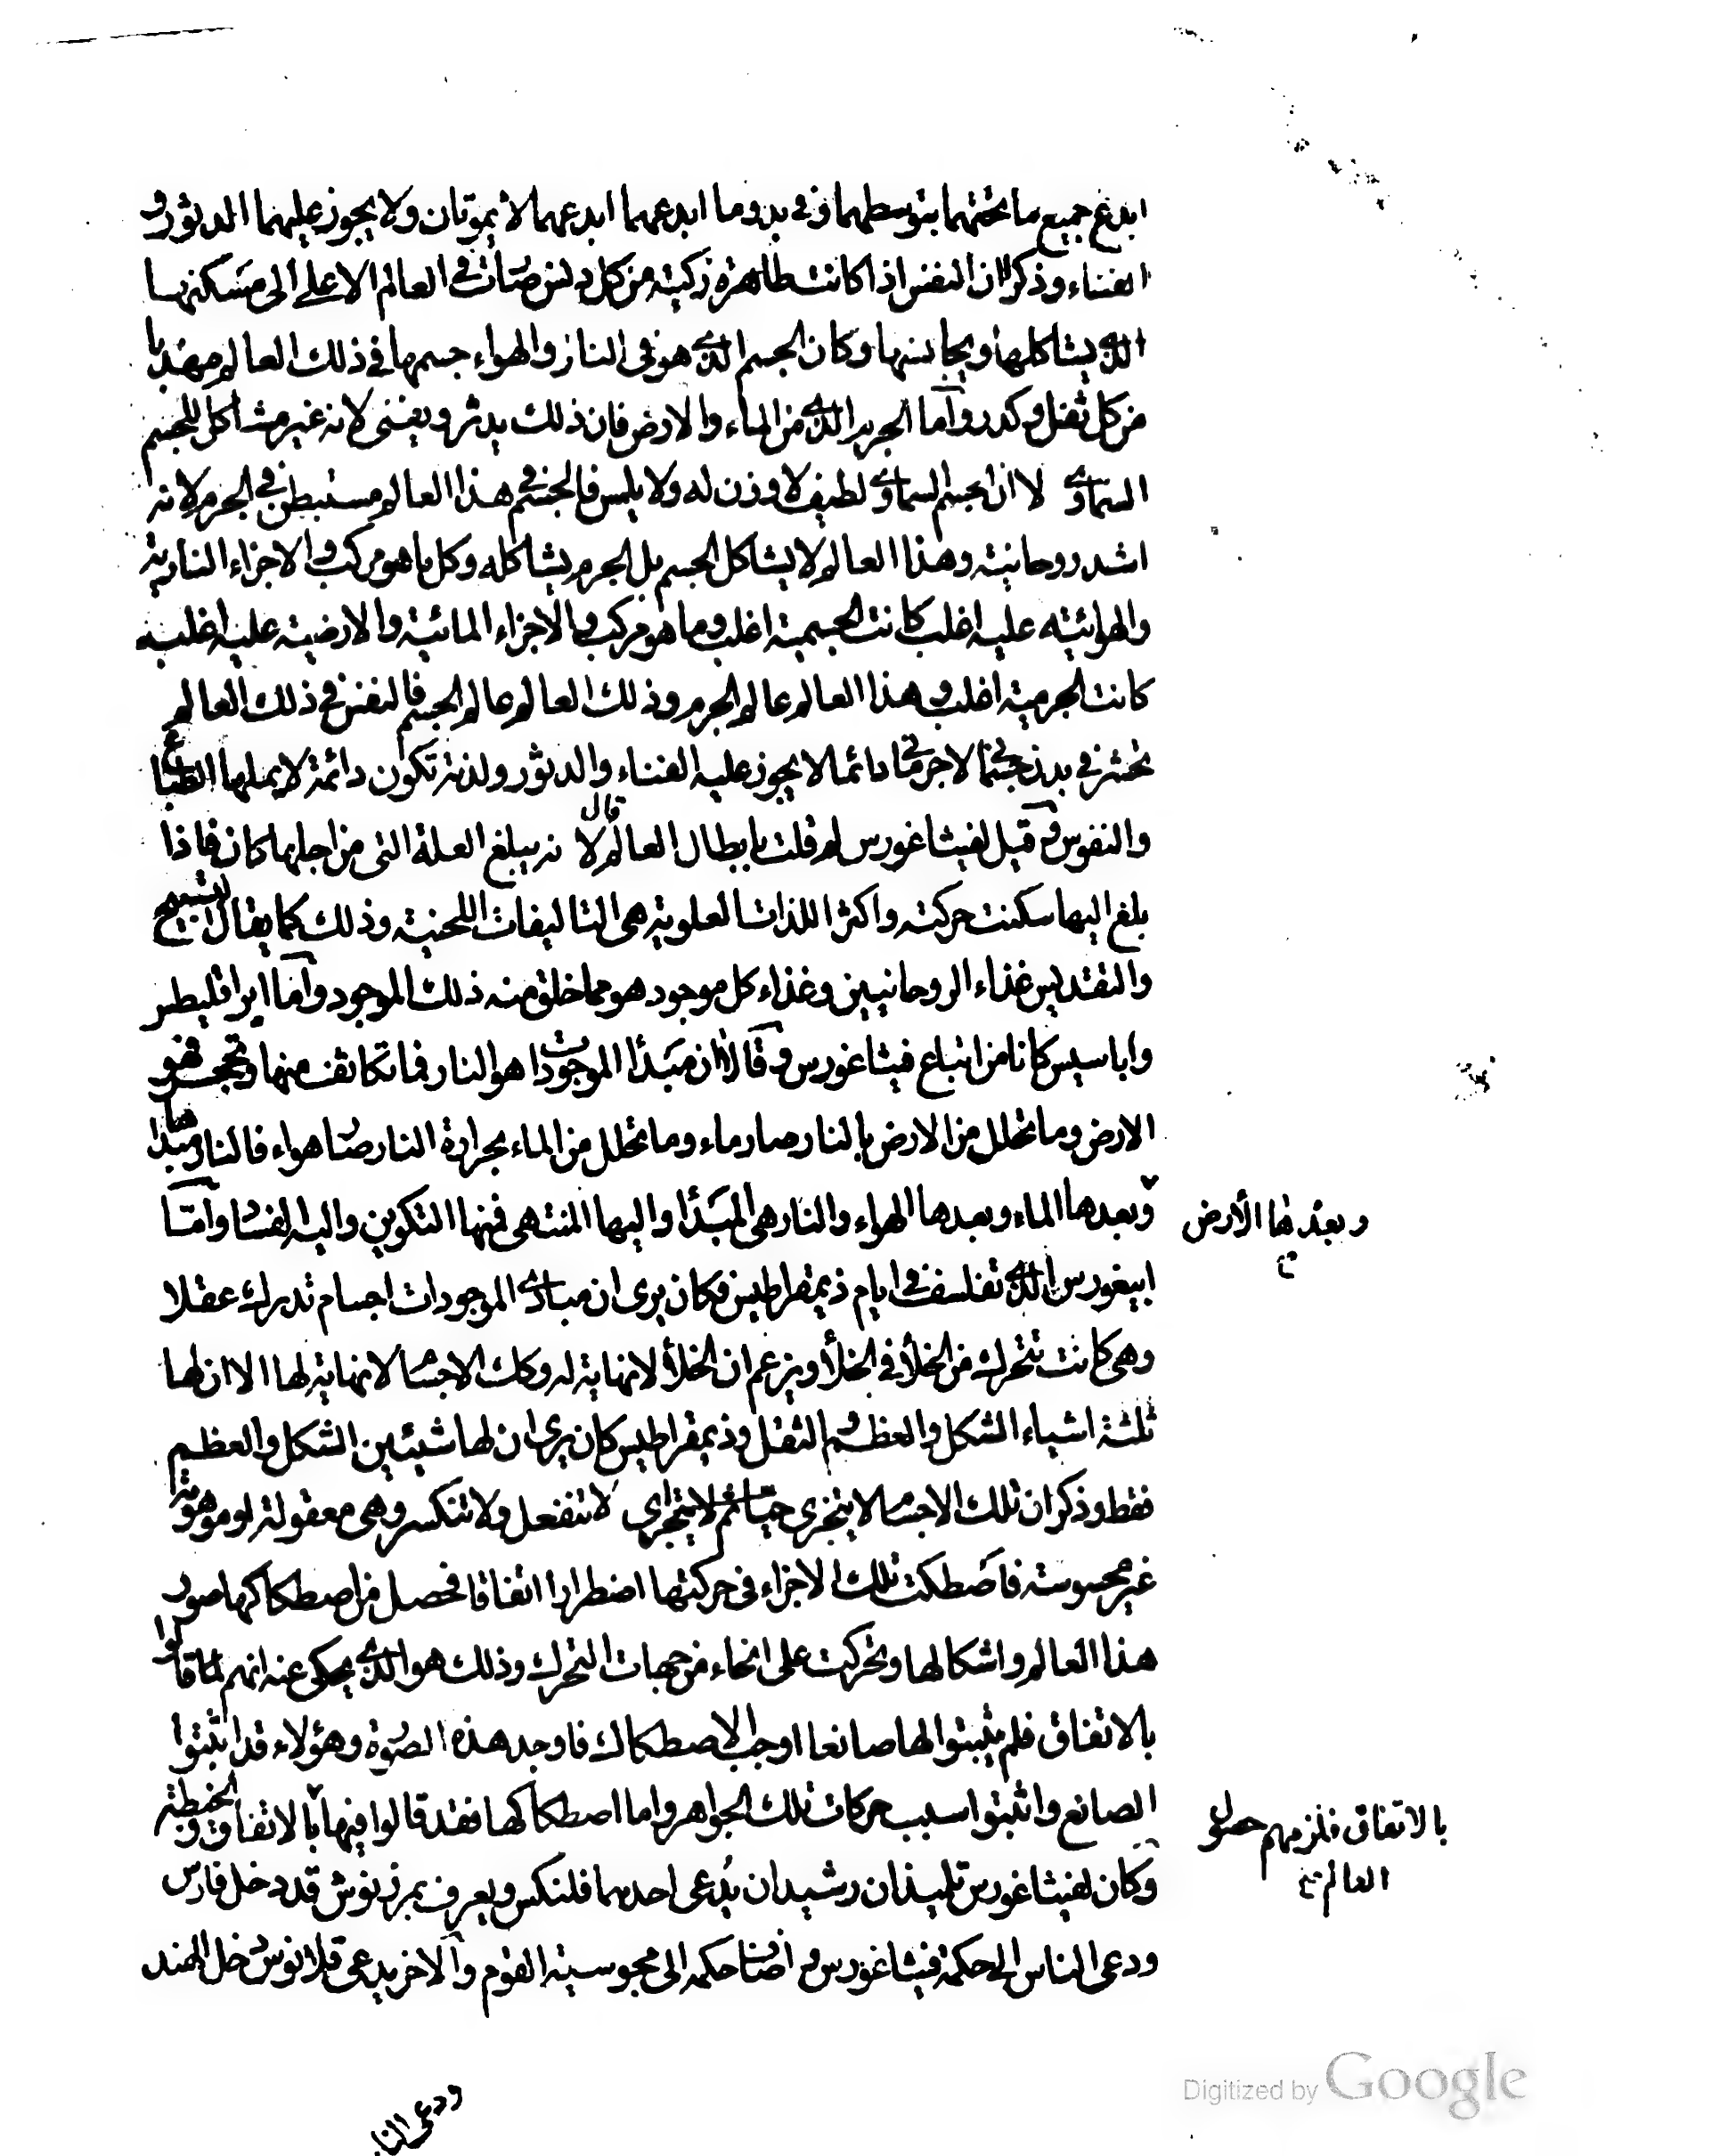 ابدع جميع ما تحتهما بتوسطهما وفى بدو ما ابدعهما ابدعهما لا يموتان ولا يجوز عليهما الدثور و
الفناء وذكر ان النفس اذا كانت طاهرة زكية من كل دنس صارت فى العالم الاعلى الى مسكنها
الذى يشاكلها ويجانسها وكان الجسم الذى هو فى النار والهواء جسمها فى ذلك العالم مهذبا
من كل ثقل وكدر واما الجرم الذى من الماء والارض فان ذلك يدثر ويفنى لانه غير مشاكل للجسم
السماوى لان الجسم السماوى لطيف لا وزن له ولا يلمس فالجسم فى هذا العالم مستبطن فى الجرم لانه
اشد روحانية وهذا العالم لا يشاكل الجسم بل الجرم يشاكله وكل ما هو مركب والاجزاء النارية
والهوائية عليه اغلب كانت الجسمية اغلب وما هو مركب والاجزاء المائية والارضية عليه اغلب
كانت الجرمية اغلب وهذا العالم عالم الجرم وذلك العالم عالم الجسم فالنفس فى ذلك العالم
تحشر فى بدن جسمانى لا جرمانى دائما لا يجوز عليه الفناء والدثور ولذته تكون دائمة لا يملها الطباع
والنفوس وقيل لفيثاغورس لم قلت بابطال العالم قال لانه يبلغ العلة التى من اجلها كان فاذا
بلغ اليها سكنت حركته واكثر اللذات العلوية هى التاليفات اللحنية وذلك كما يقال التسبيح
والتقديس غذاء الروحانيين وغذاء كل موجود هو مما خلق منه ذلك الموجود واما ايراقليطس
واباسيس كانا من اتباع فيثاغورس وقالا ان مبدأ الموجودات هو النار فما تكاثف منها وتحجر فهو
الارض وما تحلل من الارض بالنار صار ماء وما تحلل من الماء بحرارة النار صار هواء فالنار مبدأها
وبعدها الماء وبعدها الهواء والنار هى المبدأ واليها المنتهى فمنها التكوين واليه الفساد واما
وبعدها الأرض
صح
ابيغورس الذى تفلسف فى ايام ذيمقراطيس فكان يرى ان مبادى الموجودات اجسام تدرك عقلا
وهى كانت تتحرك من الخلأ فى الخلأ ويزعم ان الخلأ لا نهاية له وكذلك الاجسام لا نهاية لها الا ان لها
ثلثة اشياء الشكل والعظم والثقل وذيمقراطيس كان يرى ان لها شيئين الشكل والعظم
فقط وذكر ان تلك الاجسام لا يتجزى لا تنفعل ولا تنكسر وهى معقولة لو موهومة
غير محسوسة فاصطكت تلك الاجزاء فى حركتها اضطرارا اتفاقا فحصل من اصطكاكها صور
هذا العالم واشكالها وتحركت على انحاء من جهات التحرك وذلك هو الذى يحكى عنه انهم لما قالوا
بالاتفاق فلم يثبتوا لها صانعا اوجب الاصطكاك فاوجد هذه الصورة وهؤلاء قد اثبتوا
الصانع واثبتوا سبب حركات تلك الجواهر واما اصطكاكها فقد قالوا فيها بالاتفاق والخبطة
بالاتفاق فلزمهم حصول
العالم صح
وكان لفيثاغورس تلميذان رشيدان يُدعى احدهما فلنكس ويعرف بمرزنوش قد دخل فارس
ودعى الناس الى حكمة فيثاغورس و اضاف حكمه الى مجوسية القوم والآخر يدعى قلانوس دخل الهند
ودعى النا
Digitized by Google